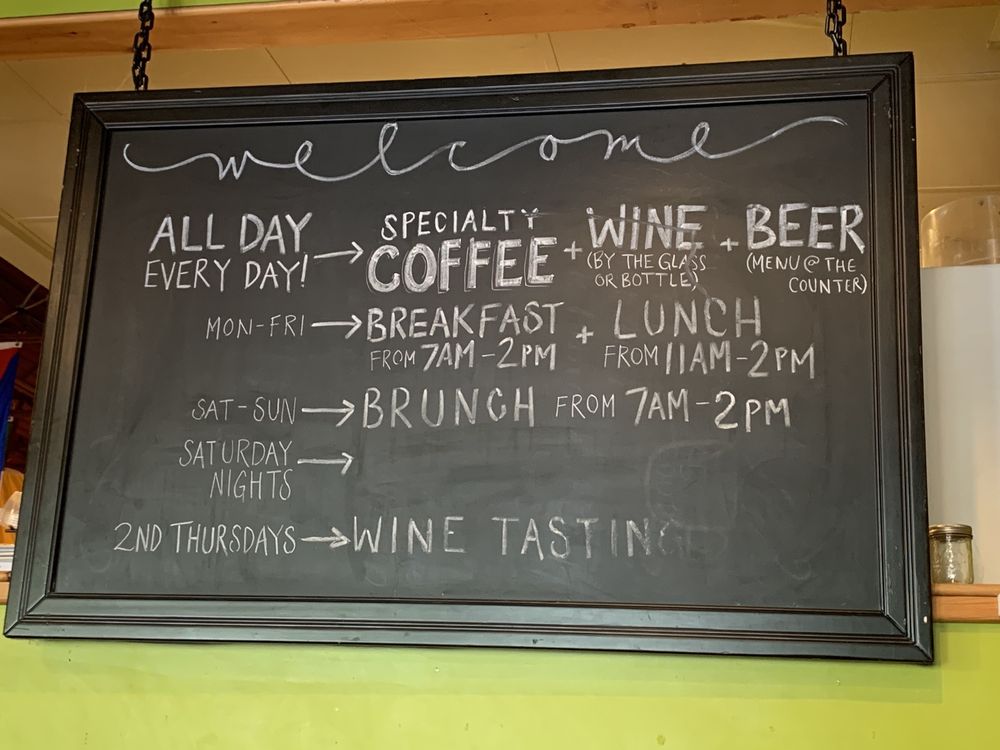 welcome
ALL DAY
EVERY DAY! → SPECIALTY
COFFEE + WINE + BEER
(BY THE GLASS
OR BOTTLE)
(MENU @ THE
COUNTER)
MON-FRI → BREAKFAST + LUNCH
FROM 7AM-2PM FROM 11AM-2PM
SAT-SUN → BRUNCH FROM 7AM-2PM
SATURDAY
NIGHTS →
2ND THURSDAYS → WINE TASTING